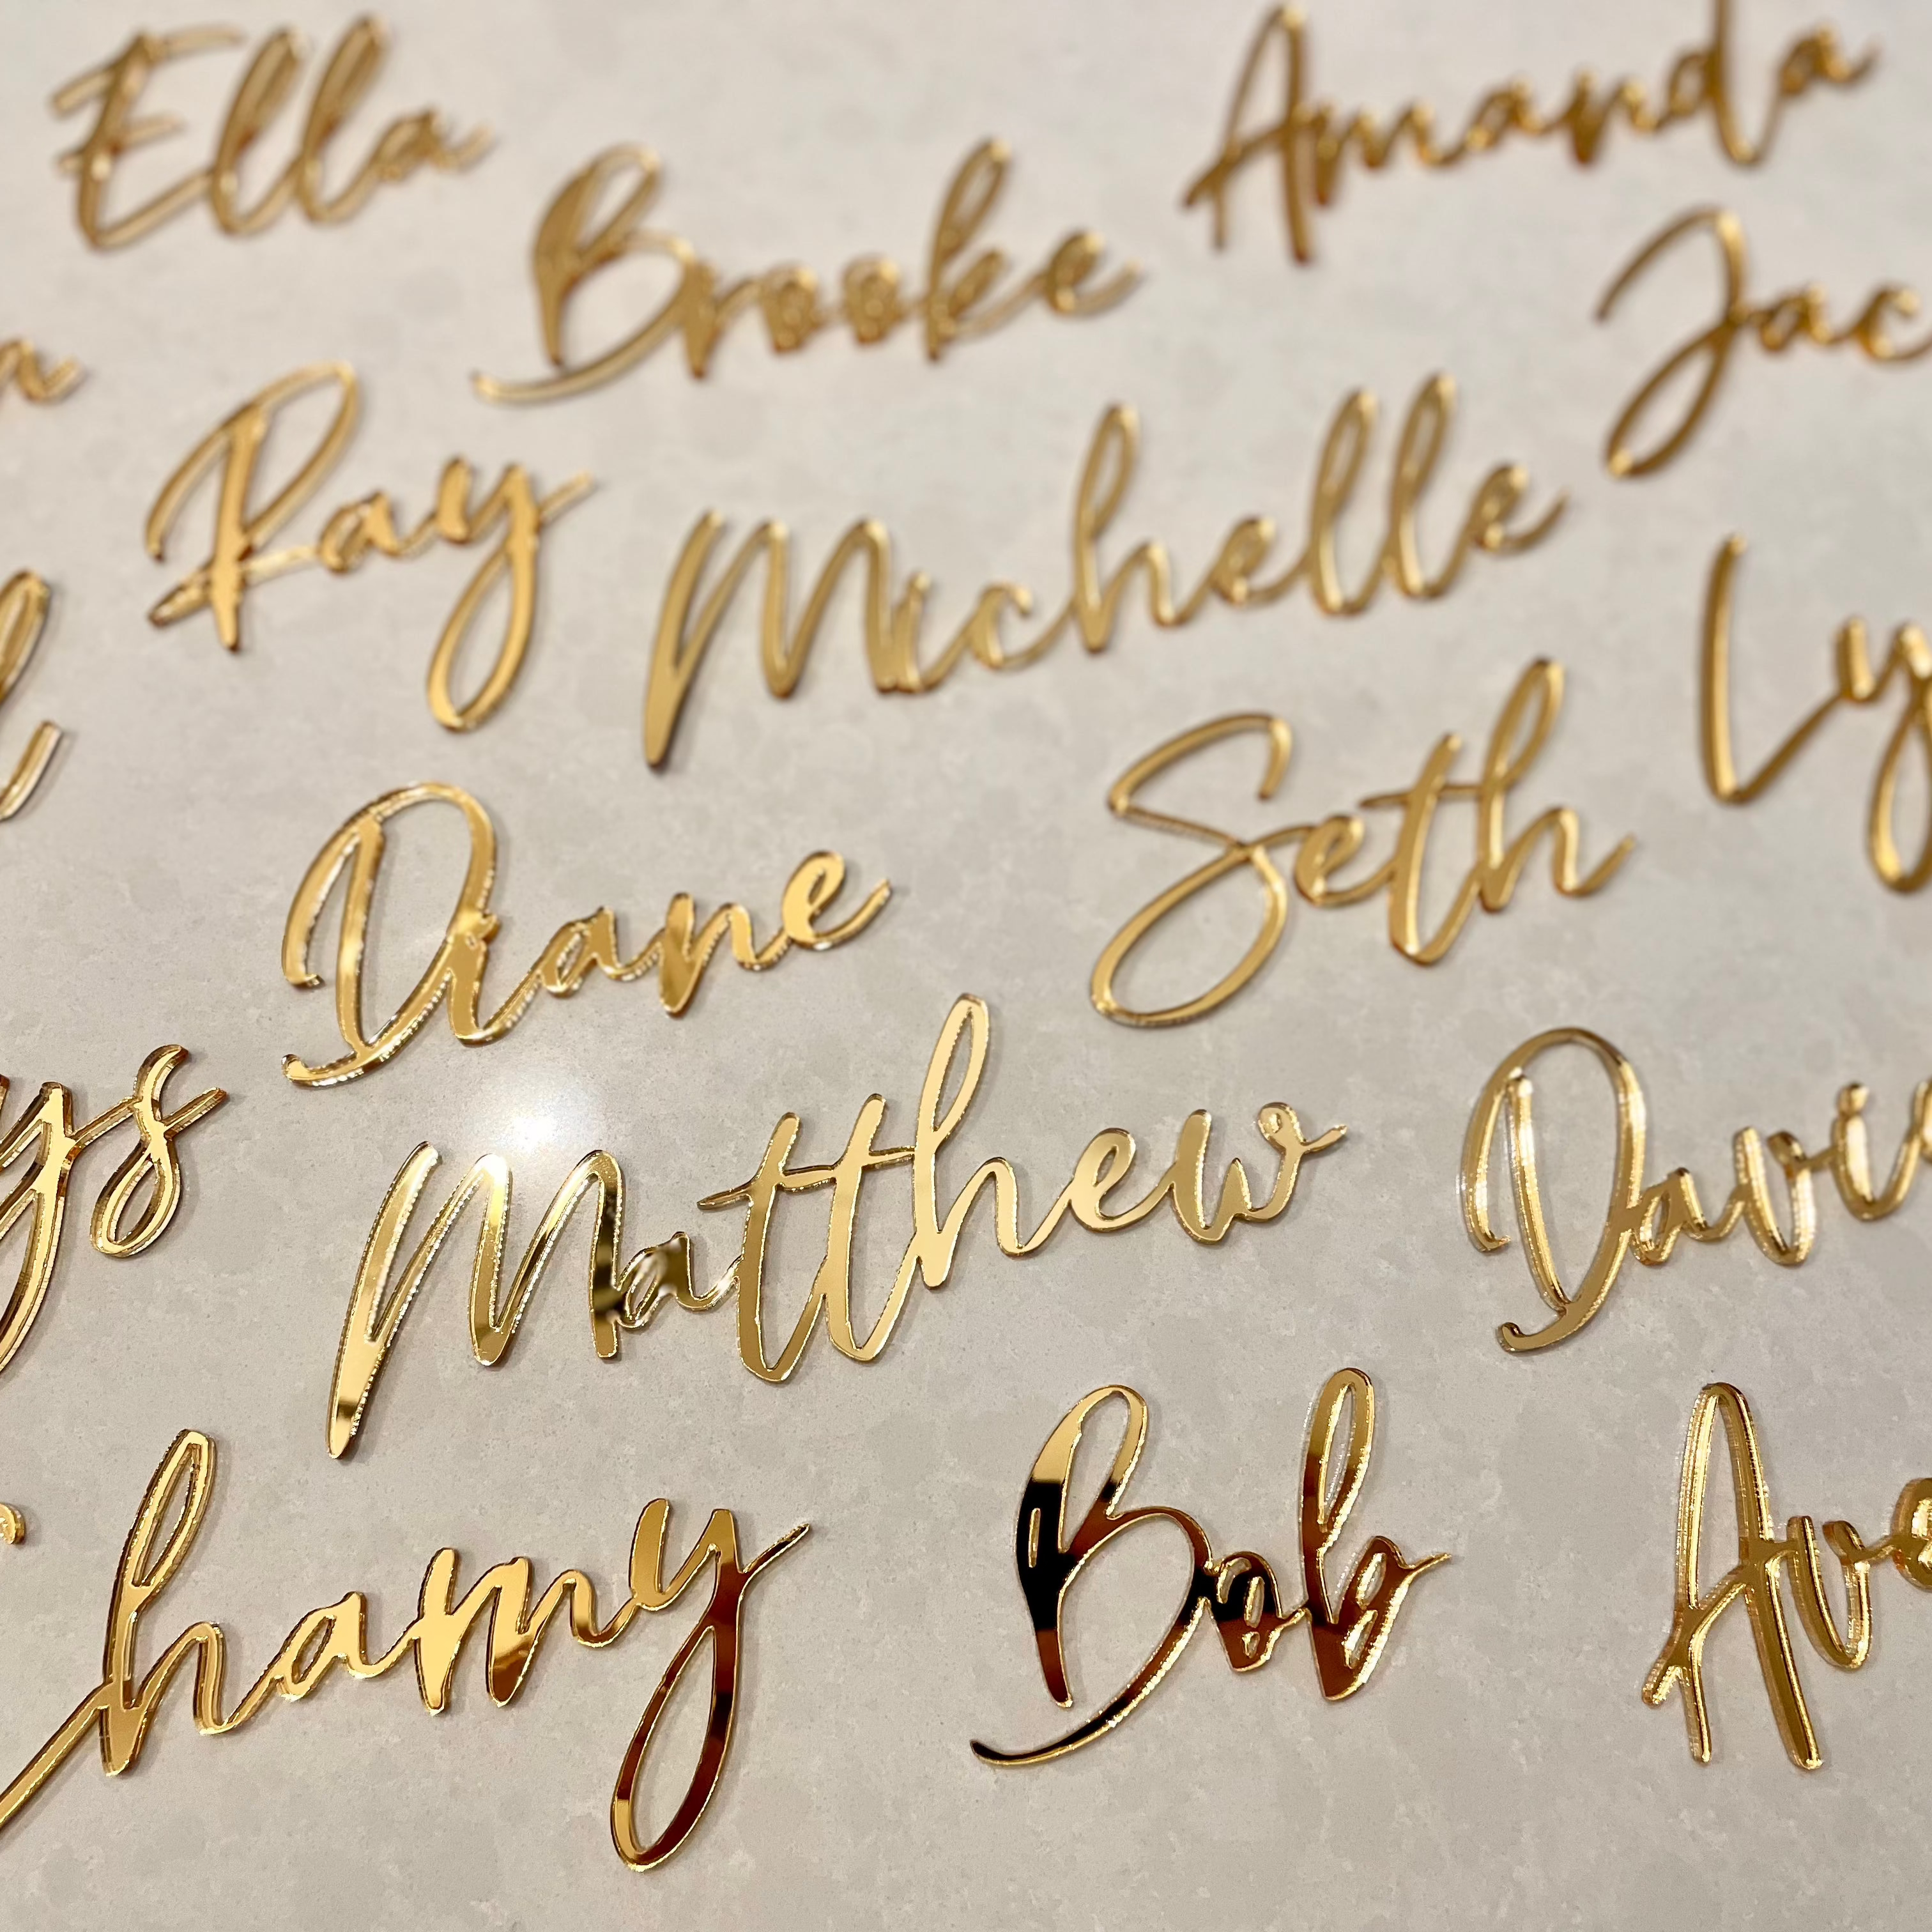 Ella
Amanda
Brooke
Jac
Ray
Michelle
Ly
Seth
Diane
ys
Matthew
Davi
hamy
Bob
Ave